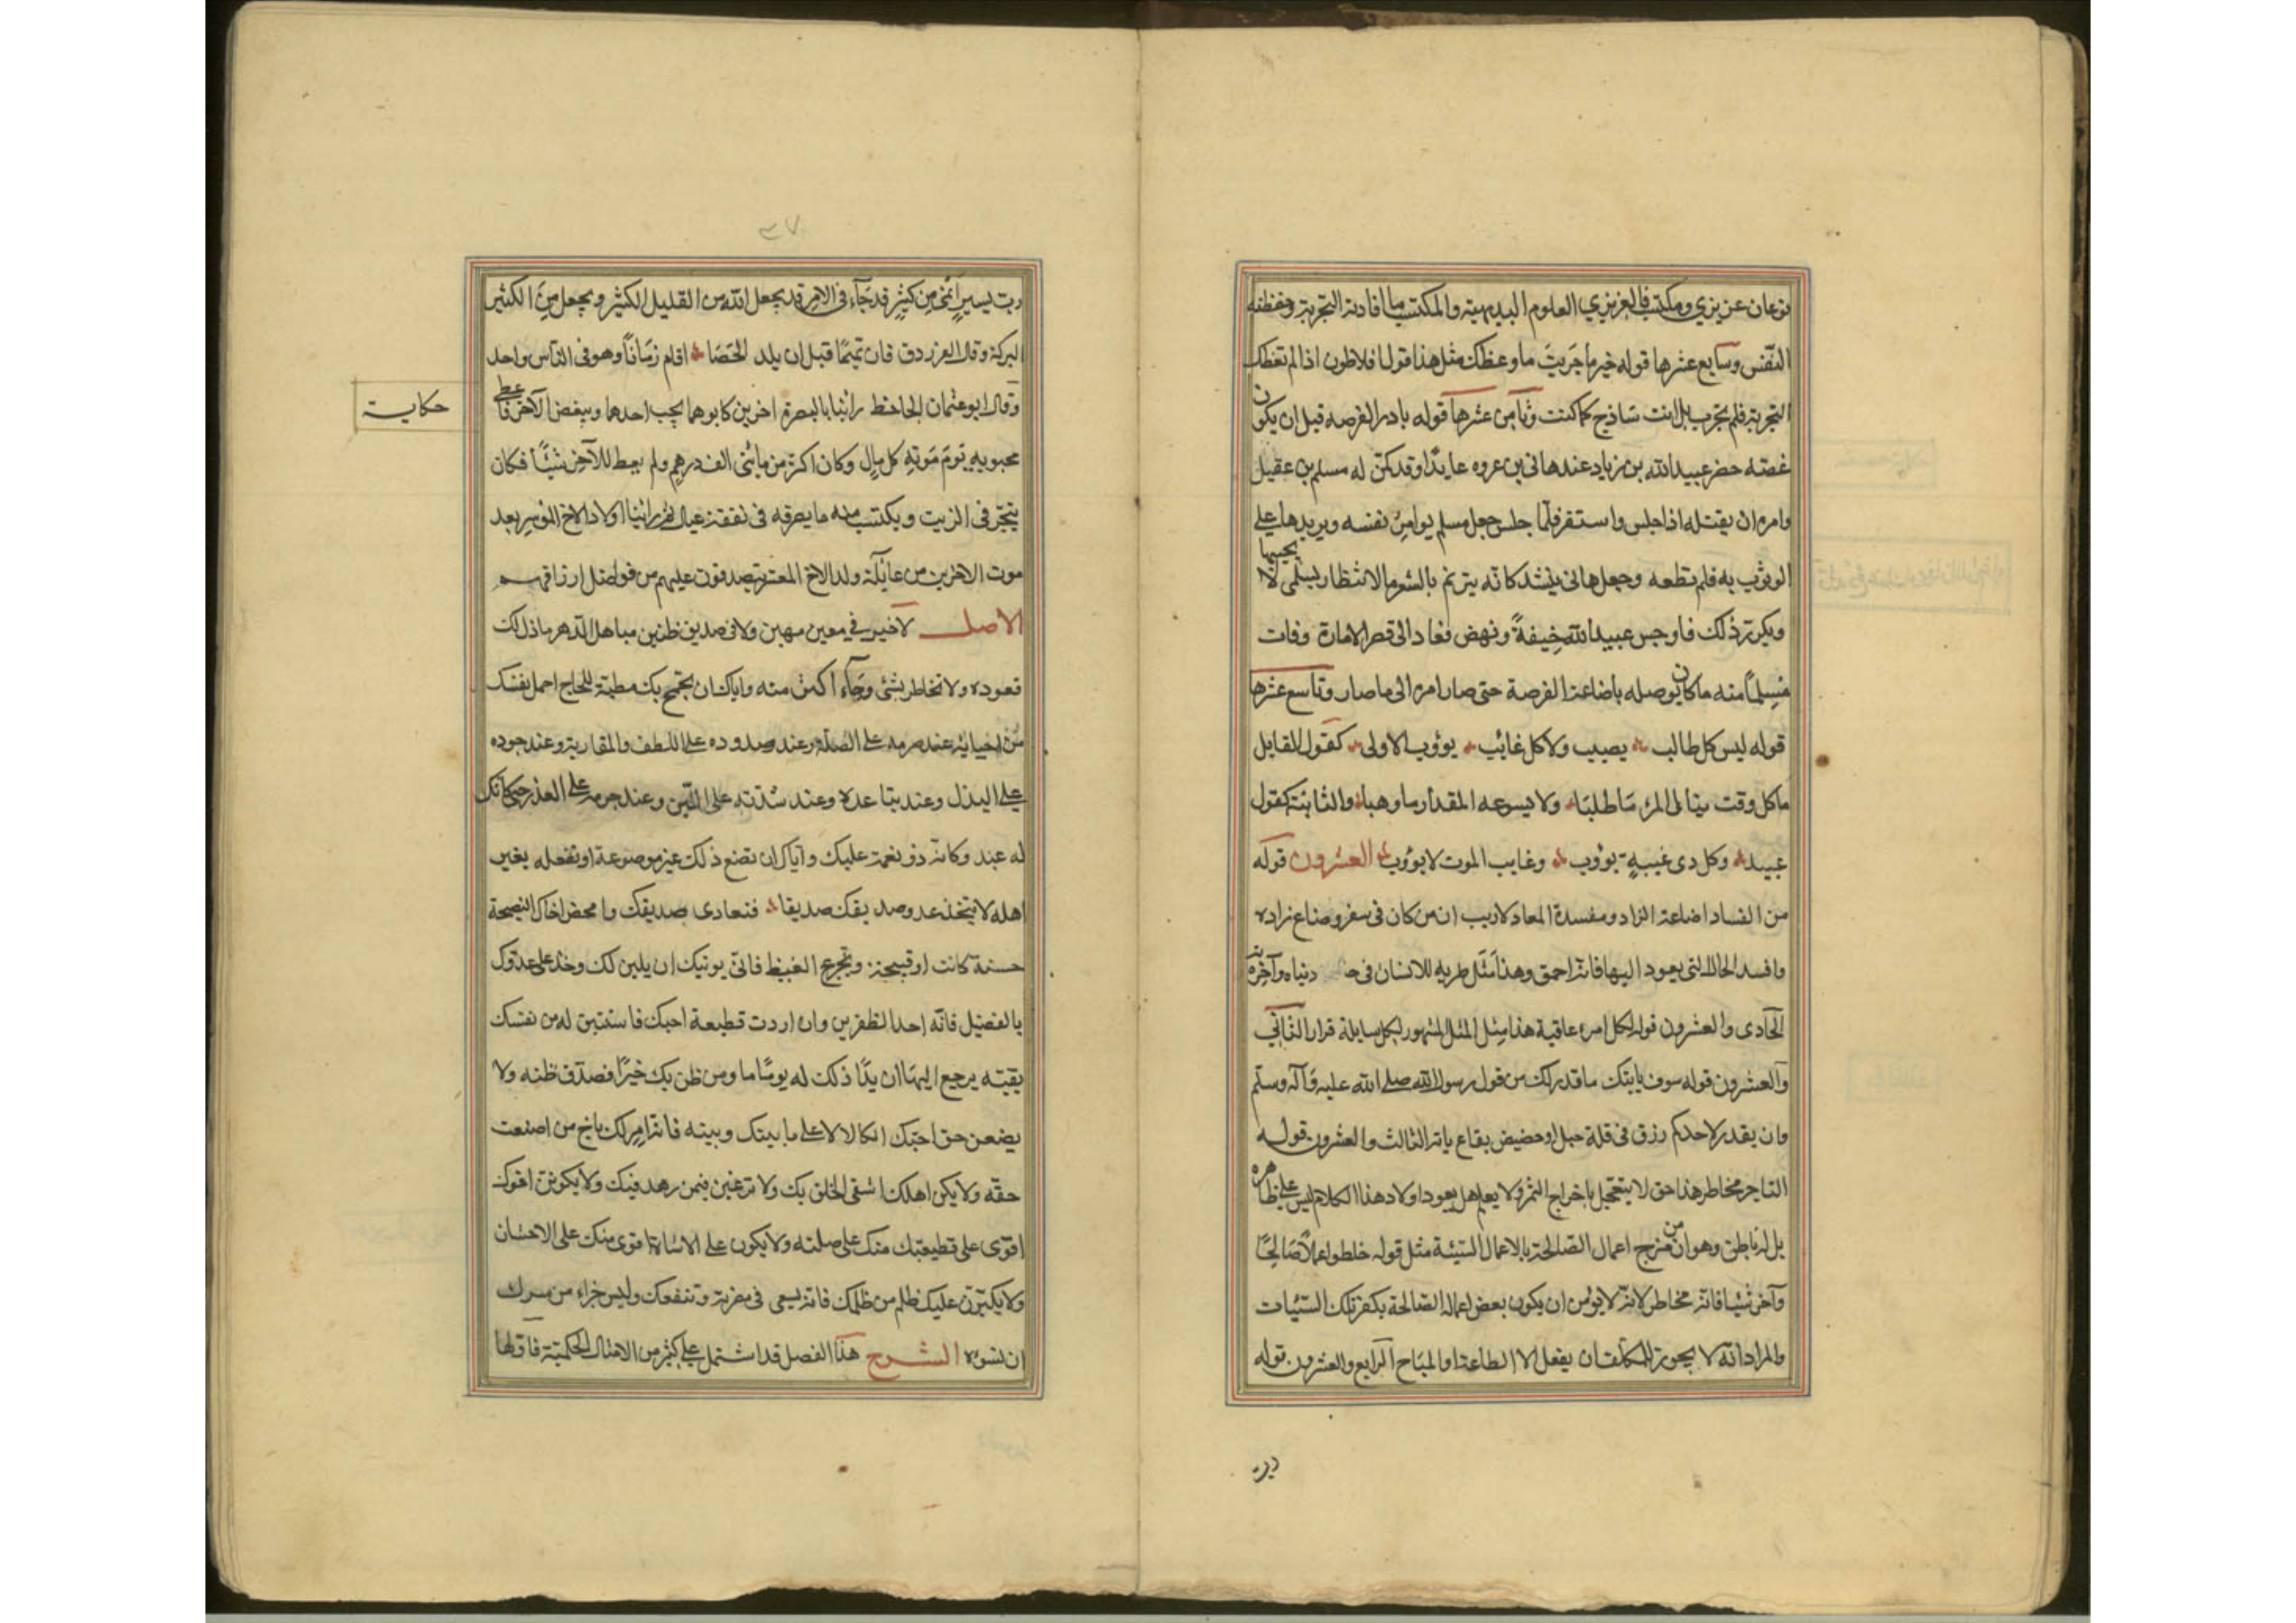 نوعان عزيزي ومكتسب فالعزيزي العلوم البديهية والمكتسب ما افادته التجربة وحفظته
النفس وسابع عشرها قوله خير ما جربت ما وعظك مثل هذا قول افلاطون اذا لم تعظك
التجربة فلم تجرب بل انت ساذج كما كنت وثامن عشرها قوله بادر الفرصه قبل ان يكون
غصته حضر عبيد الله بن زياد عند هاني بن عروه عايدًا وقد كمن له مسلم بن عقيل
وامره ان يقتله اذا جلس واستقر فلمّا جلس جعل مسلم يوامر نفسه ويريدها على
الوثوب به فلم تطعه وجعل هاني ينشد كانّه يترنم بالشعر ما الانتظار بسلمى لا يحييها
ويكرر ذلك فاوجس عبيد الله خيفةً ونهض فعاد الى قصر الامارة وفات
مسلمًا منه ما كان يوصله باضاعة الفرصة حتى صار امره الى ما صار وتاسع عشرها
قوله ليس كل طالب يصيب ولا كل غائب يؤوب الاولى كقول القايل
ما كل وقت ينال المرء ما طلبا ولا يسوعه المقدار ما وهبا والثانية كقول
عبيد وكل ذى غيبةٍ يؤوب وغايب الموت لا يؤوب العشرون قوله
من الفساد اضاعة الزاد ومفسدة المعاد لاريب ان من كان فى سفر وضاع زاده
وافسد الحال التى يعود اليها فانه احمق وهذا مثل ضربه للانسان فى دنياه وآخرته
الحادى والعشرون قوله لكل امرء عاقبة هذا مثل المثل المشهور لكل سايلة قرار الثانى
والعشرون قوله سوف ياتيك ما قدر لك من قول رسول الله صلى الله عليه وآله وسلم
وان يقدر لاحدكم رزق فى قلة جبل او حضيض بقاع ياته الثالث والعشرون قوله
التاجر مخاطر هذا حق لا يتعجل باخراج الثمر ولا يعلم هل يعود او لا وهذا الكلام ليس على ظاهره
بل له باطن وهو ان من مزج اعمال الصالحة بالاعمال السيئة مثل قوله خلطوا عملًا صالحًا
وآخر سيئا فانه مخاطر لانه لا يؤمن ان يكون بعض اعماله الصالحة يكفر تلك السيئات
والمراد انه لا يجوز للمكلف ان يفعل الا الطاعة او المباح الرابع والعشرون قوله
رب
٣٧
ربّ يسيرٍ انمى من كثيرٍ قد جآء فى الاثر قد يجعل الله من القليل الكثير ويجعل من الكثير
البركة وقال الفرزدق فان تميمًا قبل ان يلد الحصا اقام زمانًا وهو فى الناس واحد
وقال ابو عثمان الجاحظ راينا بالبصرة اخوين كان ابوهما يحب احدهما ويبغض الآخر فاعطى
حكاية
محبوبه يوم موته كل مالٍ وكان اكثر من مائتى الف درهم ولم يعط للآخر شيئًا فكان
يتجر فى الزيت ويكتسب منه ما يصرفه فى نفقة عياله ثم راينا اولاد الاخ الموسر بعد
موت الاخوين من عايلة ولد الاخ المعسر يتصدقون عليهم من فواضل ارزاقهم
الاصل لا خير فى معين مهين ولا فى صديق ظنين ساهل الدهر ما ذل لك
قعوده ولا تخاطر بشئ رجاء اكثر منه واياك ان تجمح بك مطية اللجاج احمل نفسك
من اخيك عند صرمه على الصلة وعند صدوده على اللطف والمقاربة وعند جموده
على البذل وعند تباعده وعند شدته على اللين وعند جرمه على العذر حتى كانك
له عبد وكانه ذو نعمة عليك واياك ان تضع ذلك غير موضوعة او تفعله بغير
اهله لا تتخذ عدو صديقك صديقا فتعادى صديقك وامحض اخاك النصيحة
حسنة كانت او قبيحة وتجرع الغيظ فانى يوتيك ان يلين لك وخذ على عدوك
بالفضل فانه احد الظفرين وان اردت قطيعة اخيك فاستبق له من نفسك
بقيته يرجع اليها ان بدا ذلك له يومًا ما ومن ظن بك خيرًا فصدق ظنه ولا
يضعن حق اخيك اتكالا على ما بينك وبينه فانه ليس لك باخ من اضعت
حقه ولا يكن اهلك اشقى الخلق بك ولا ترغبن فيمن زهد فيك ولا يكونن اخوك
اقوى على قطيعتك منك على صلته ولا يكون على الاساءة اقوى منك على الاحسان
ولا يكبرن عليك ظلم من ظلمك فانه يسعى فى مضرته وتنفعك وليس جزاء من سرك
ان تسوه الشرح هذا الفصل قد اشتمل على كثير من الامثال الحكمية فاولها